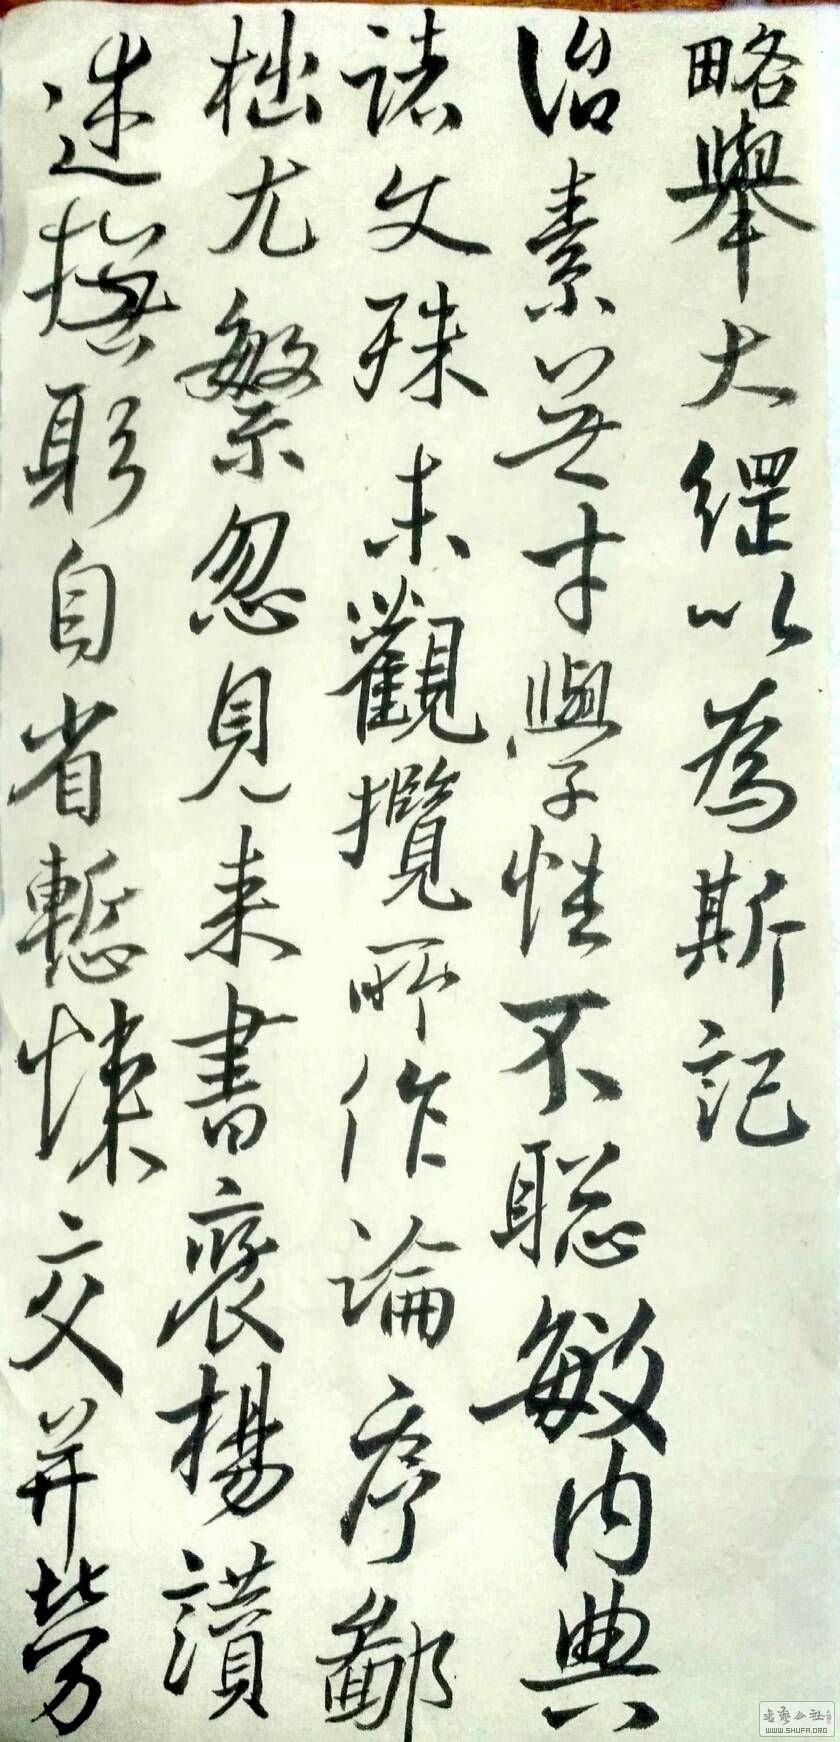 略舉大綱以為斯記
治素無才學性不聰敏内典
諸文殊未觀攬所作論序鄙
拙尤繁忽見来書褒揚讃
述撫躬自省慙悚交并勞
書藝公社
WWW.SHUFA.ORG